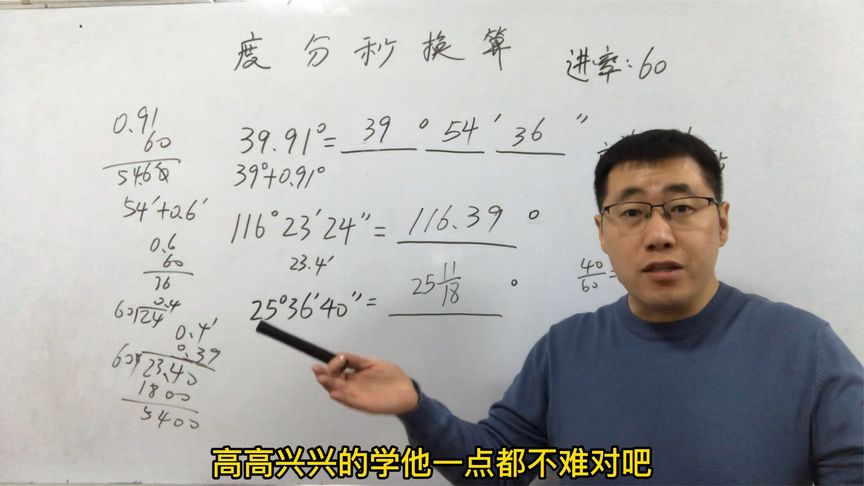 度分秒换算
进率:60
0.91
60
54.60
54′+0.6′
0.6
60
36
0.4
60 24
0.4′
0.39
60 23.40
1800
5400
39.91°= 39 ° 54 ′ 36 ″
39°+0.91°
116°23′24″= 116.39 °
23.4′
25°36′40″= 25 11/18 °
40/60=
高高兴兴的学他一点都不难对吧